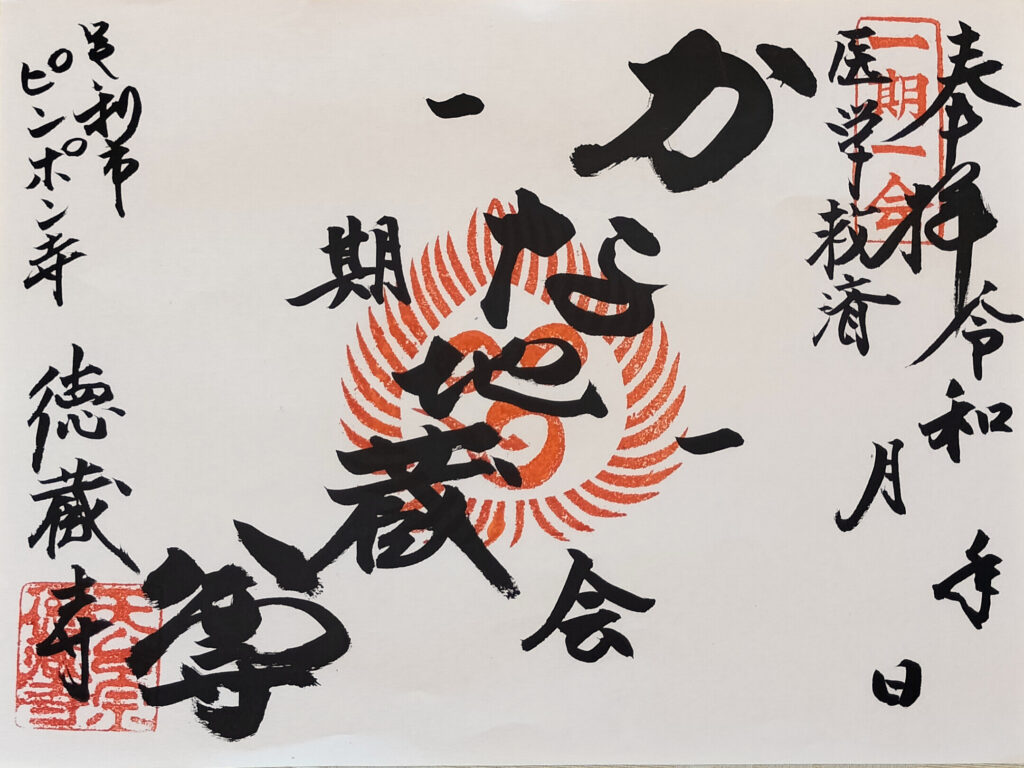 奉拝 令和 年
月 日
一期一会
医学救済
かな地蔵尊
一期一会
足利市
ピンポン寺
徳蔵寺